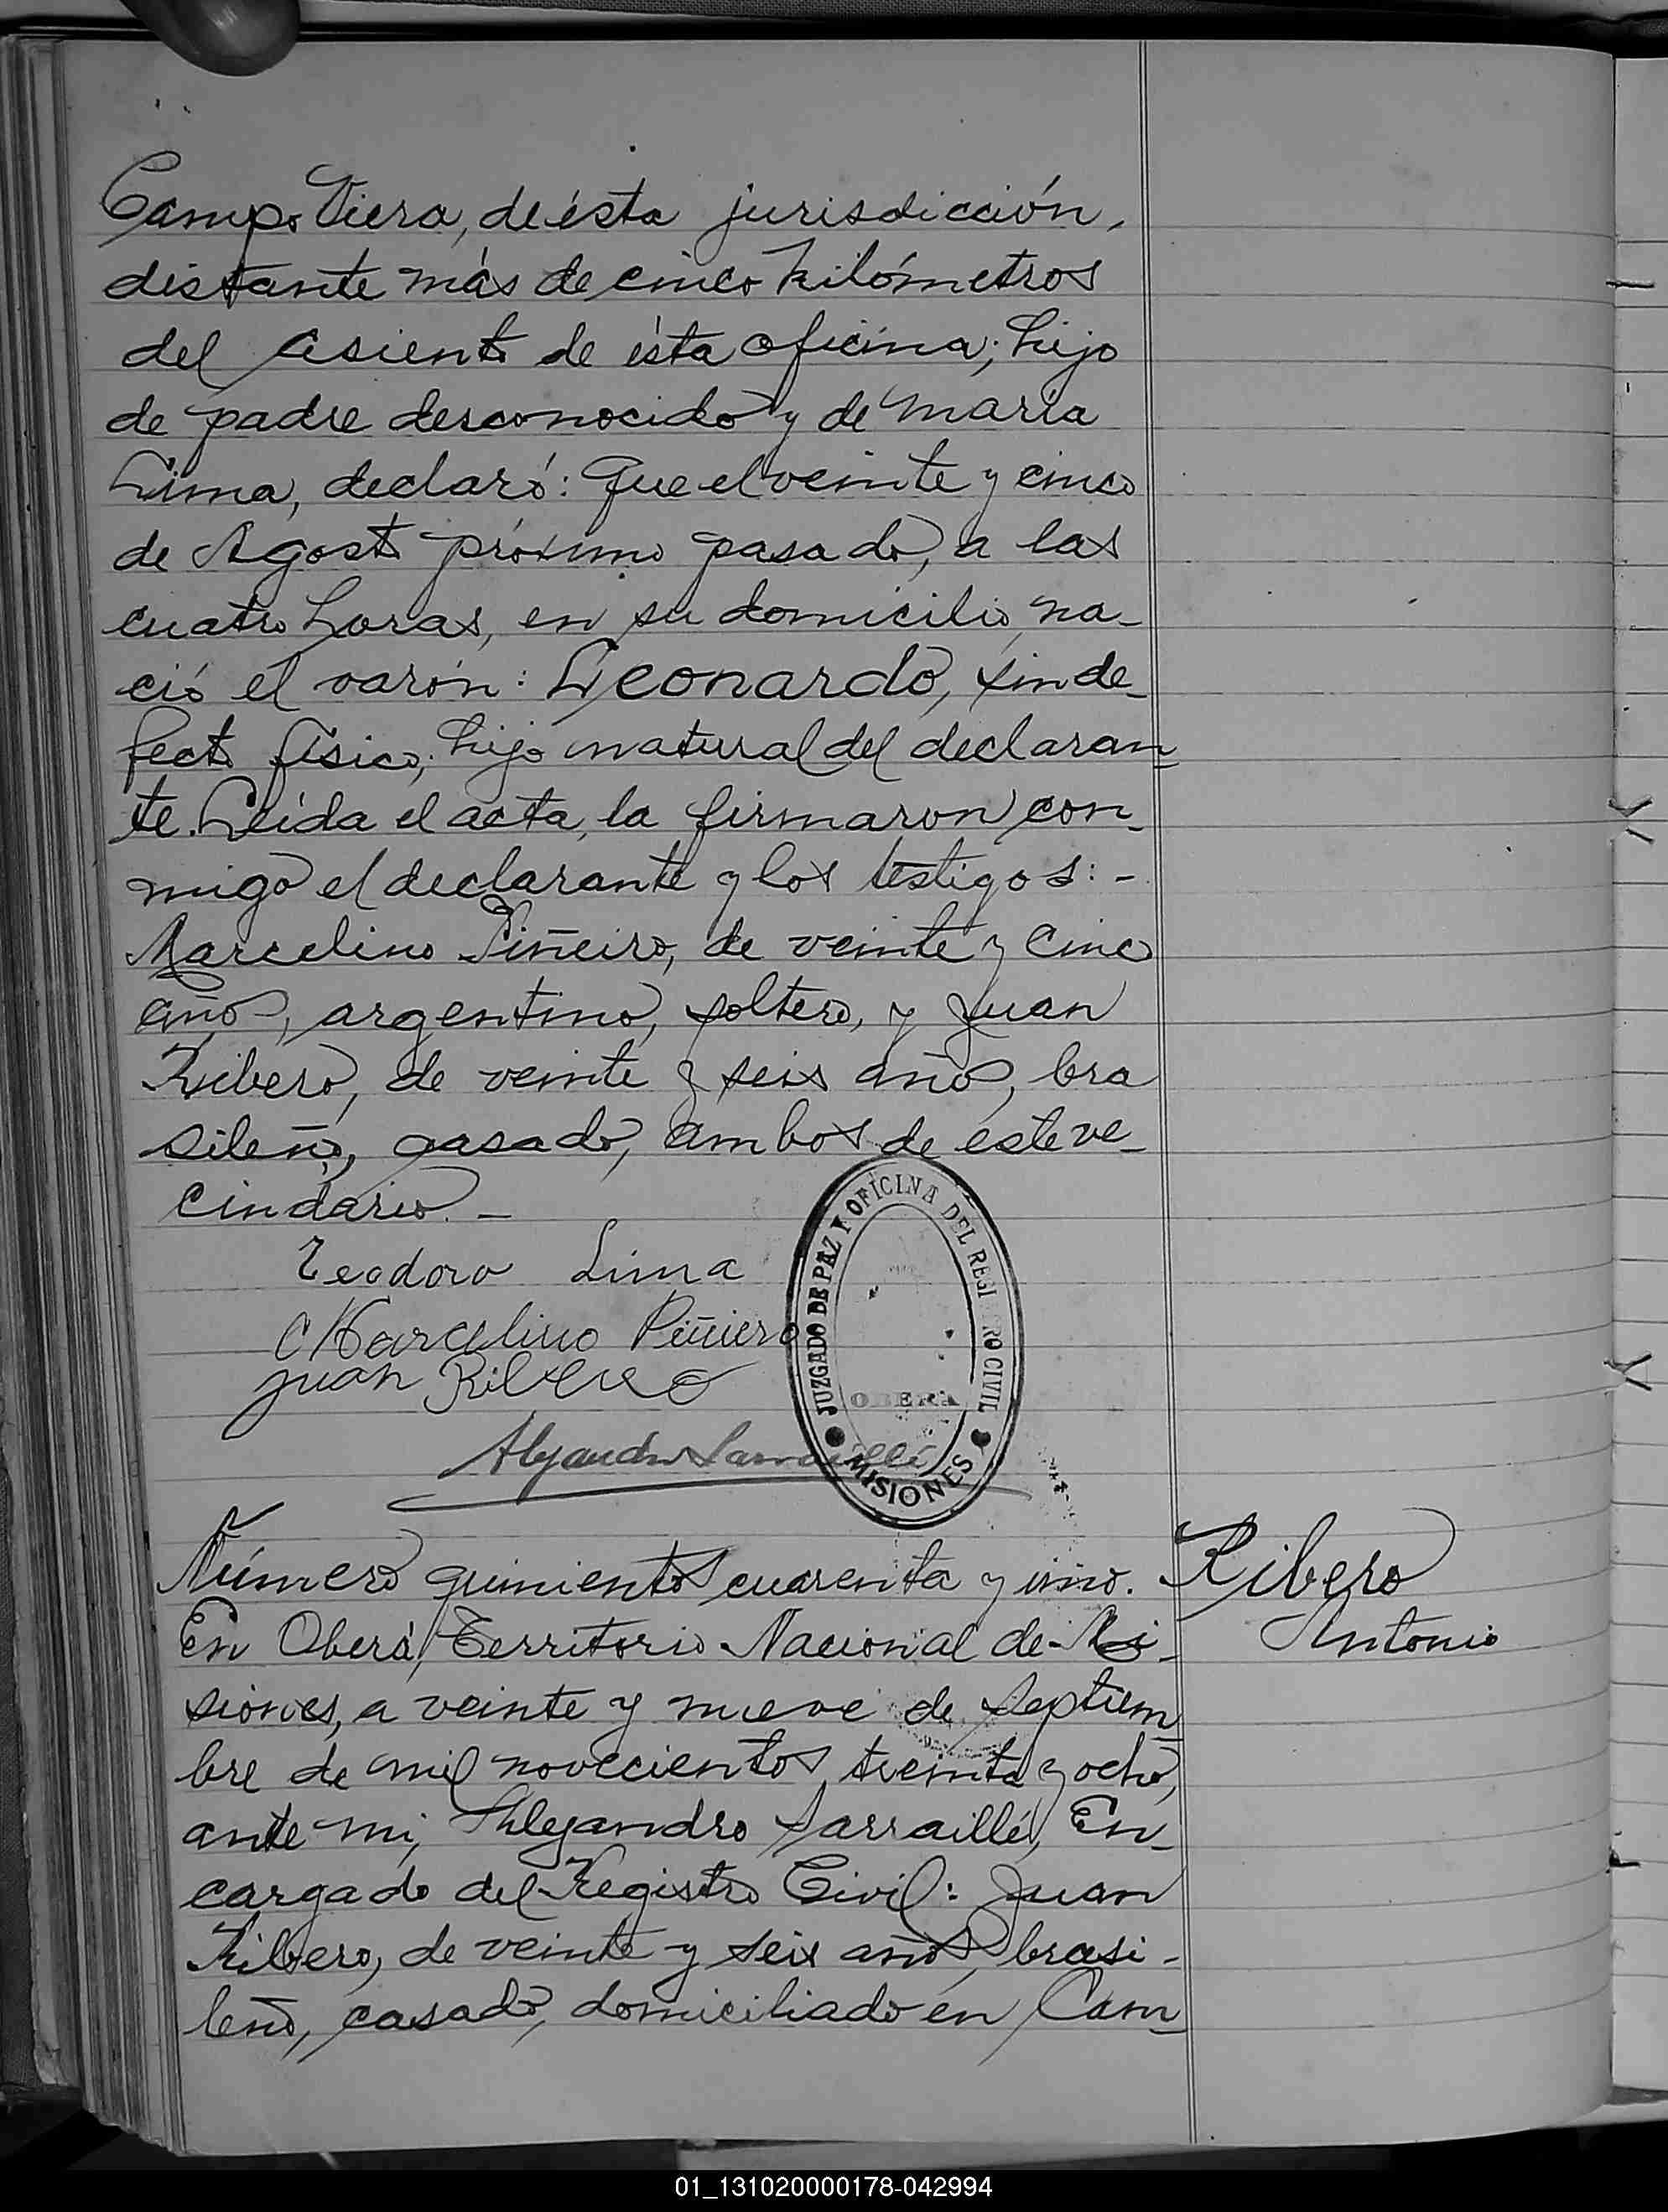 Campo Viera, de ésta jurisdicción,
distante más de cinco kilómetros
del asiento de ésta oficina; hijo
de padre desconocido y de María
Lima, declaró: Que el veinte y cinco
de Agosto próximo pasado, a las
cuatro horas, en su domicilio, na-
ció el varón: Leonardo, sin de-
fecto físico; hijo natural del declaran-
te. Leída el acta, la firmaron con-
migo el declarante y los testigos: -
Marcelino Piñeiro, de veinte y cinco
años, argentino, soltero, y Juan
Ribero, de veinte y seis años, bra
sileño, casado, ambos de este ve-
cindario. -
Teodoro Lima
Marcelino Piñiero
Juan Ribero
Alejandro Sarraillé
JUZGADO DE PAZ Y OFICINA DEL REGI RO CIVIL
OBERA
MISIONES
Número quinientos cuarenta y uno.
Ribero
Antonio
En Oberá, Territorio Nacional de Mi-
siones, a veinte y nueve de septiem
bre de mil novecientos treinta y ocho,
ante mi, Alejandro Sarraillé, En-
cargado del Registro Civil: Juan
Ribero, de veinte y seis años, brasi-
leño, casado, domiciliado en Cam-
01_131020000178-042994